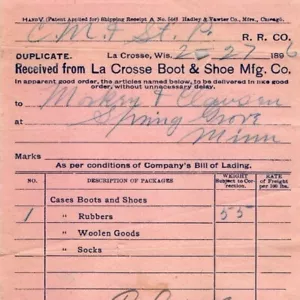 HANDY (Patent Applied for) Shipping Receipt A No. 5648 Hadley & Vawter Co., Mfrs., Chicago.
C. M. & St. P. R. R. CO.
DUPLICATE. La Crosse, Wis. 2-27 1896
Received from La Crosse Boot & Shoe Mfg. Co.
In apparent good order, the articles named below, to be delivered in like good
order, without unnecessary delay,
to
Spring Grove
Minn
Marks
As per conditions of Company's Bill of Lading.
NO. DESCRIPTION OF PACKAGES WEIGHT Subject to Correction. RATE of Freight per 100 lbs.
Cases Boots and Shoes
1 " Rubbers 55
" Woolen Goods
" Socks